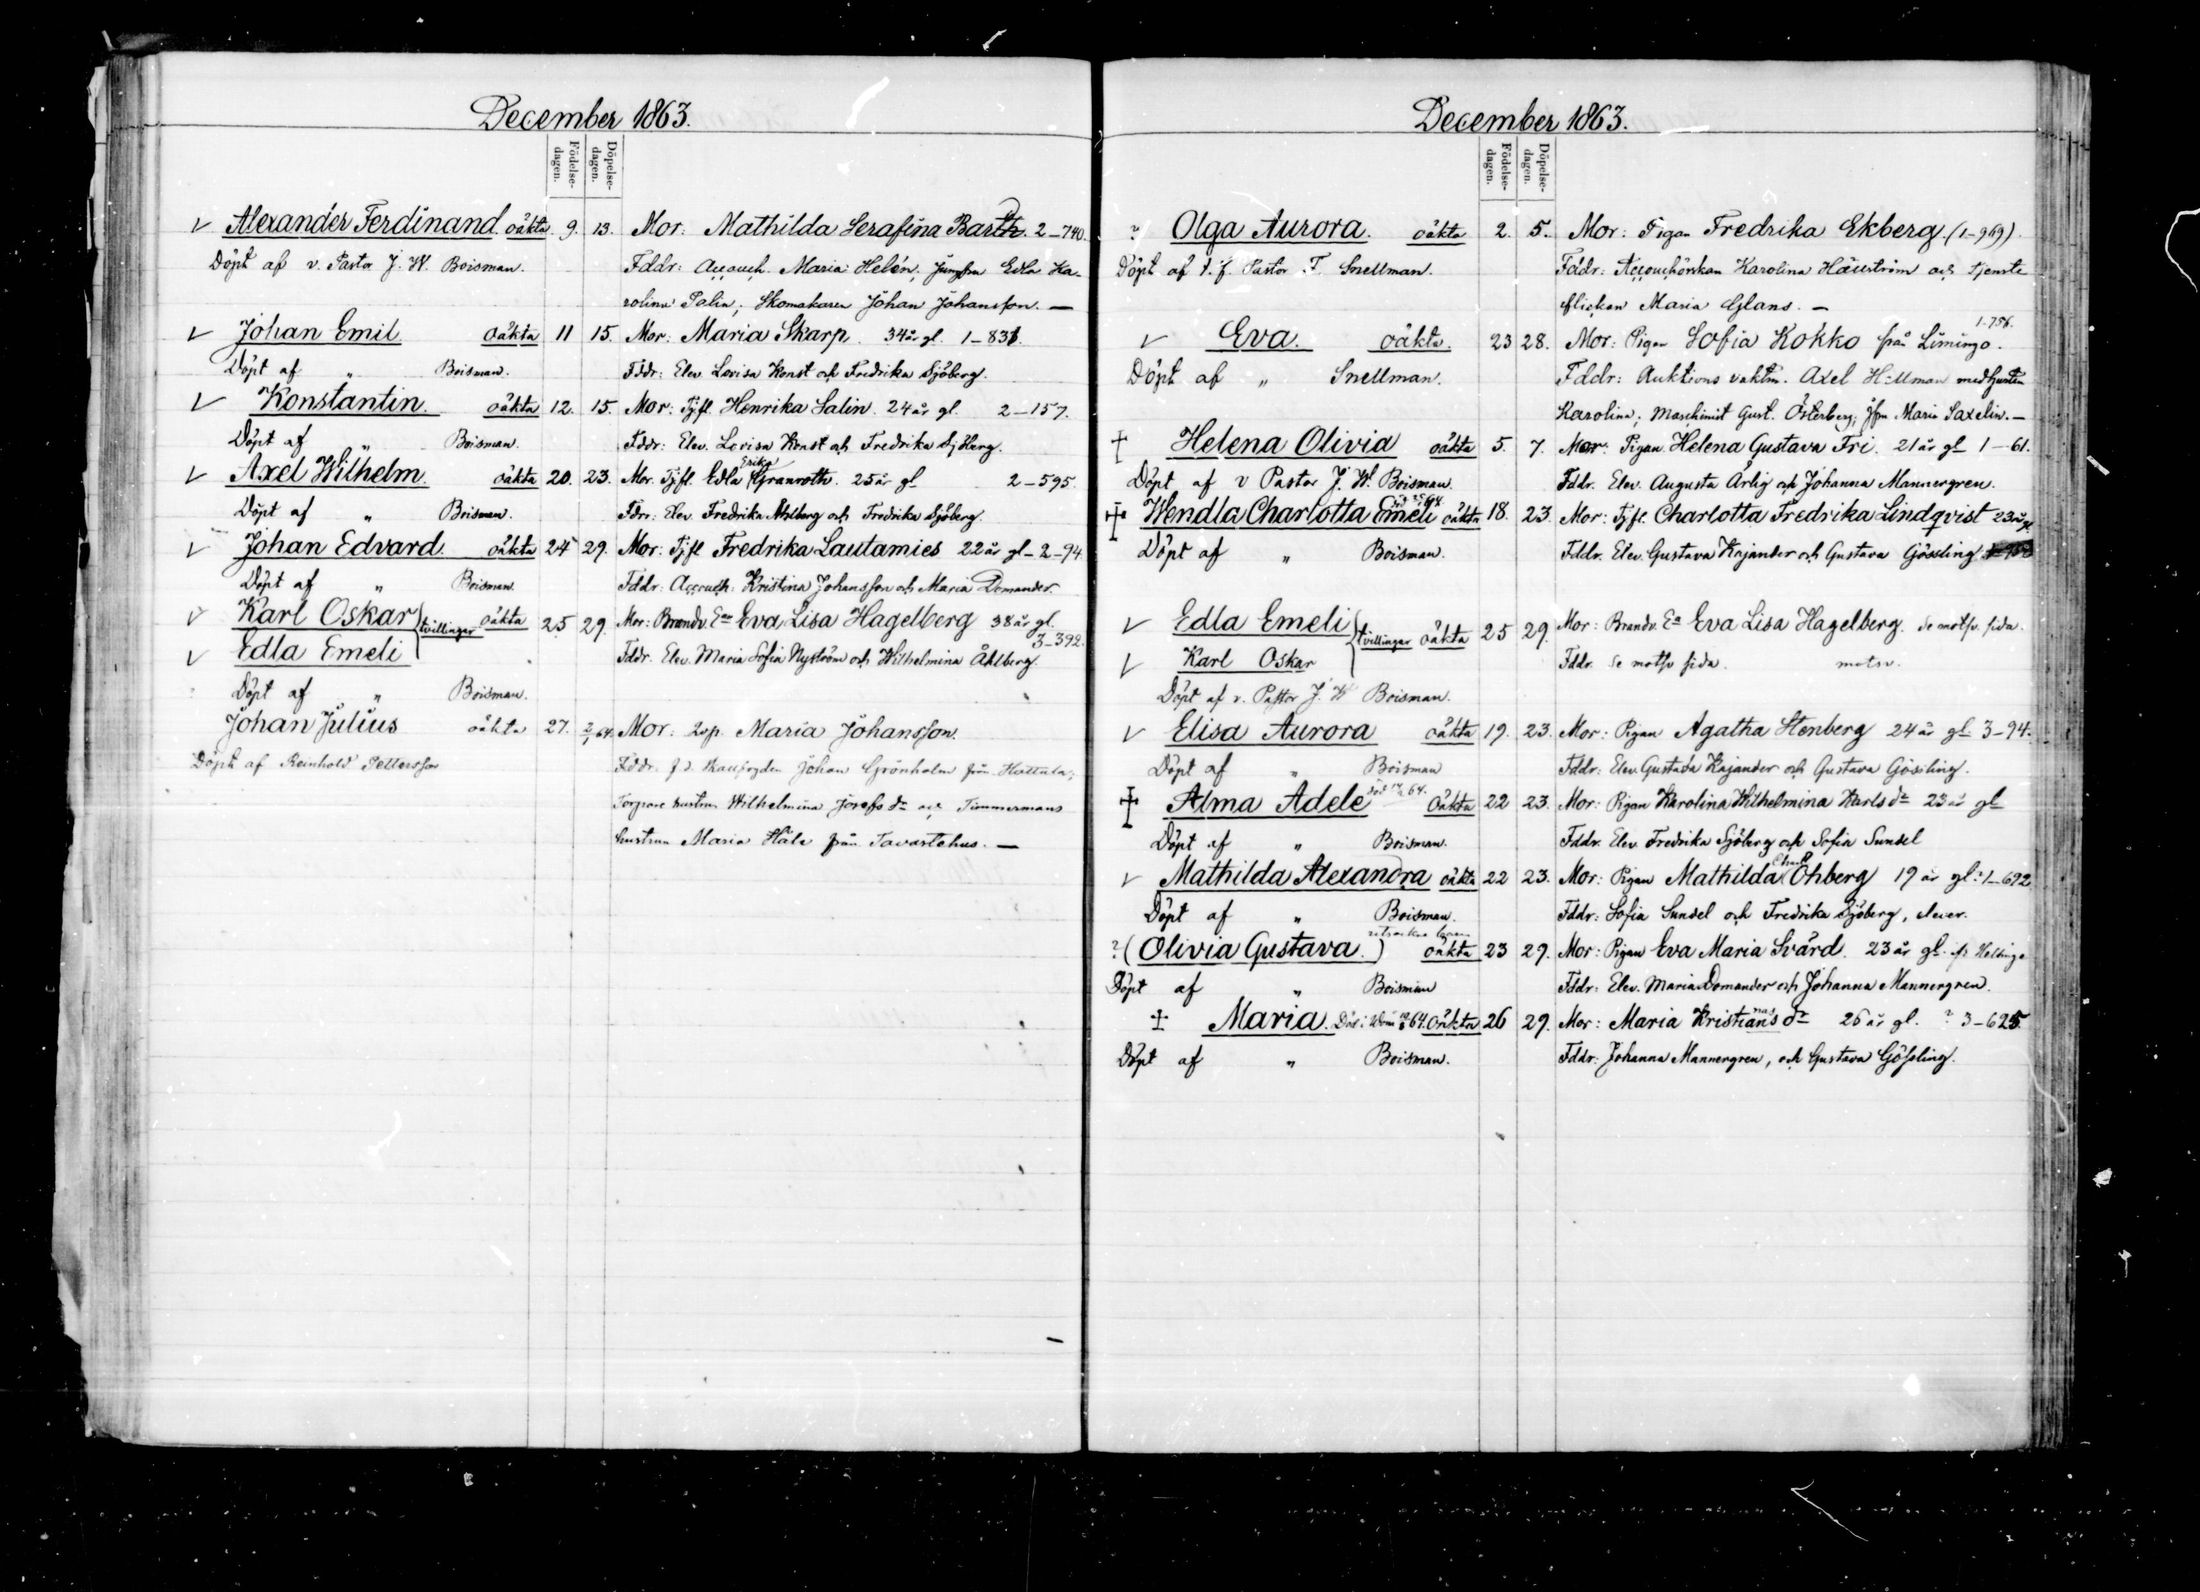 December 1863.
Födelse-dagen. Döpelse-dagen.
Alexander Ferdinand oäkta 9. 13. Mor: Mathilda Serafina Barth. 2-740.
Döpt af v. Pastor J. W. Boisman. Fddr: Accouch. Maria Helén, Jungfru Edla Ka-
rolina Palin, Skomakaren Johan Johansson. —
Johan Emil oäkta 11 15. Mor: Maria Skarp. 34 år gl. 1-831.
Döpt af " Boisman. Fddr: Elev. Lovisa Konst och Fredrika Sjöberg.
Konstantin. oäkta 12. 15. Mor: Tjfl. Henrika Salin. 24 år gl. 2-157.
Döpt af " Boisman. Fddr: Elev. Lovisa Konst och Fredrika Sjöberg.
Axel Wilhelm. oäkta 20. 23. Mor. Tjfl. Edla Erika Granroth. 25 år gl 2-595.
Döpt af " Boisman. Fdrr: Elev Fredrika Ahlberg och Fredrika Sjöberg.
Johan Edvard. oäkta 24 29. Mor: Tjfl Fredrika Lautamies 22 år gl-2-94.
Döpt af " Boisman. Fddr: Accouch. Kristina Johansson och Maria Domander.
Karl Oskar tvillingar oäkta 25 29. Mor: Brandv. Ean Eva Lisa Hagelberg 38 år gl.
3-392.
Edla Emeli Fddr. Elev. Maria Sofia Nyström och Wilhelmina Åhlberg.
Döpt af " Boisman.
Johan Julius oäkta 27. 2/1 64. Mor: Maria Johansson.
Döpt af Reinhold Pettersson Fddr. f.d. Johan Grönholm från Hattula,
Torpare hustrun Wilhelmina Josefsdr och Timmermans
hustrun Maria från Tavastehus. —
December 1863.
Födelse-dagen. Döpelse-dagen.
? Olga Aurora. oäkta 2. 5. Mor: Pigan Fredrika Ekberg. (1-969).
Döpt af t. f. Pastor F. Snellman. Fddr: Accouchörskan Karolina Hällström och tjenste
flickan Maria Glans. —
1-756.
Eva. oäkta. 23 28. Mor: Pigan Sofia Kokko från Limingo.
Döpt af " Snellman. Fddr: Auktions vaktm. Axel Hellman med hustru
Karolina; Maschinist Gust. Österberg; Jfru Maria Saxelin. —
Helena Olivia oäkta 5. 7. Mor: Pigan Helena Gustava Fri. 21 år gl 1-61.
Döpt af v Pastor J. W. Boisman. Fddr. Elev. Augusta Ärlig och Johanna Mannergren.
Wendla Charlotta Emeli oäkta 18. 23. Mor: Tjfl. Charlotta Fredrika Lindqvist 23 år gl.
Döpt af " Boisman. Fddr. Elev. Gustava Kajander och Gustava Gössling
Edla Emeli tvillingar oäkta 25 29. Mor: Brandv. Ea Eva Lisa Hagelberg. Se motsv. sida.
Karl Oskar Fddr. Se motsv sida. motsv.
Döpt af v. Pastor J. W Boisman.
Elisa Aurora oäkta 19. 23. Mor: Pigan Agatha Stenberg 24 år gl. 3-94.
Döpt af " Boisman Fddr: Elev. Gustava Kajander och Gustava Gössling.
Alma Adele oäkta 22 23. Mor: Pigan Karolina Wilhelmina Karlsdr 23 år gl
Döpt af " Boisman. Fddr. Elev. Fredrika Sjöberg och Sofia Sundel
Mathilda Alexandra oäkta 22 23. Mor: Pigan Mathilda Öhberg 19 år gl. 1-692
Döpt af " Boisman. Fddr: Sofia Sundel och Fredrika Sjöberg, elever.
? (Olivia Gustava.) oäkta 23 29. Mor: Pigan Eva Maria Svärd. 23 år gl. fr Helsinge
Döpt af " Boisman Fddr: Elev. Maria Domander och Johanna Mannergren.
Maria. 64. oäkta 26 29. Mor: Maria Kristiansdr 26 år gl. ? 3-625.
Döpt af " Boisman. Fddr: Johanna Mannergren, och Gustava Gössling.